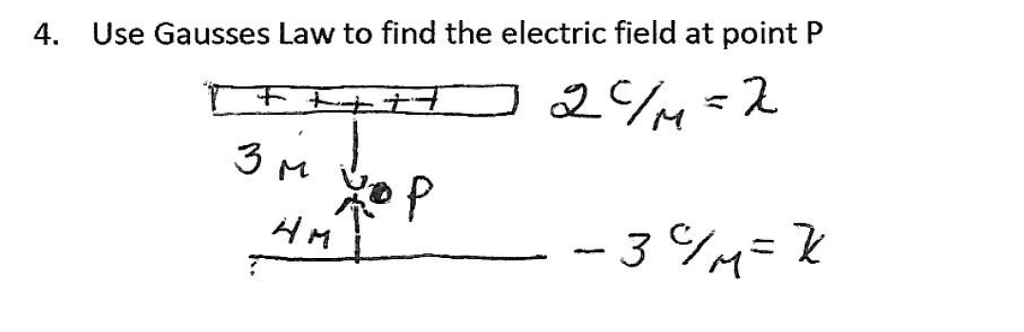 4. Use Gausses Law to find the electric field at point P
+ + + + +
2 C/M = λ
3 M
P
4 M
- 3 C/M = λ